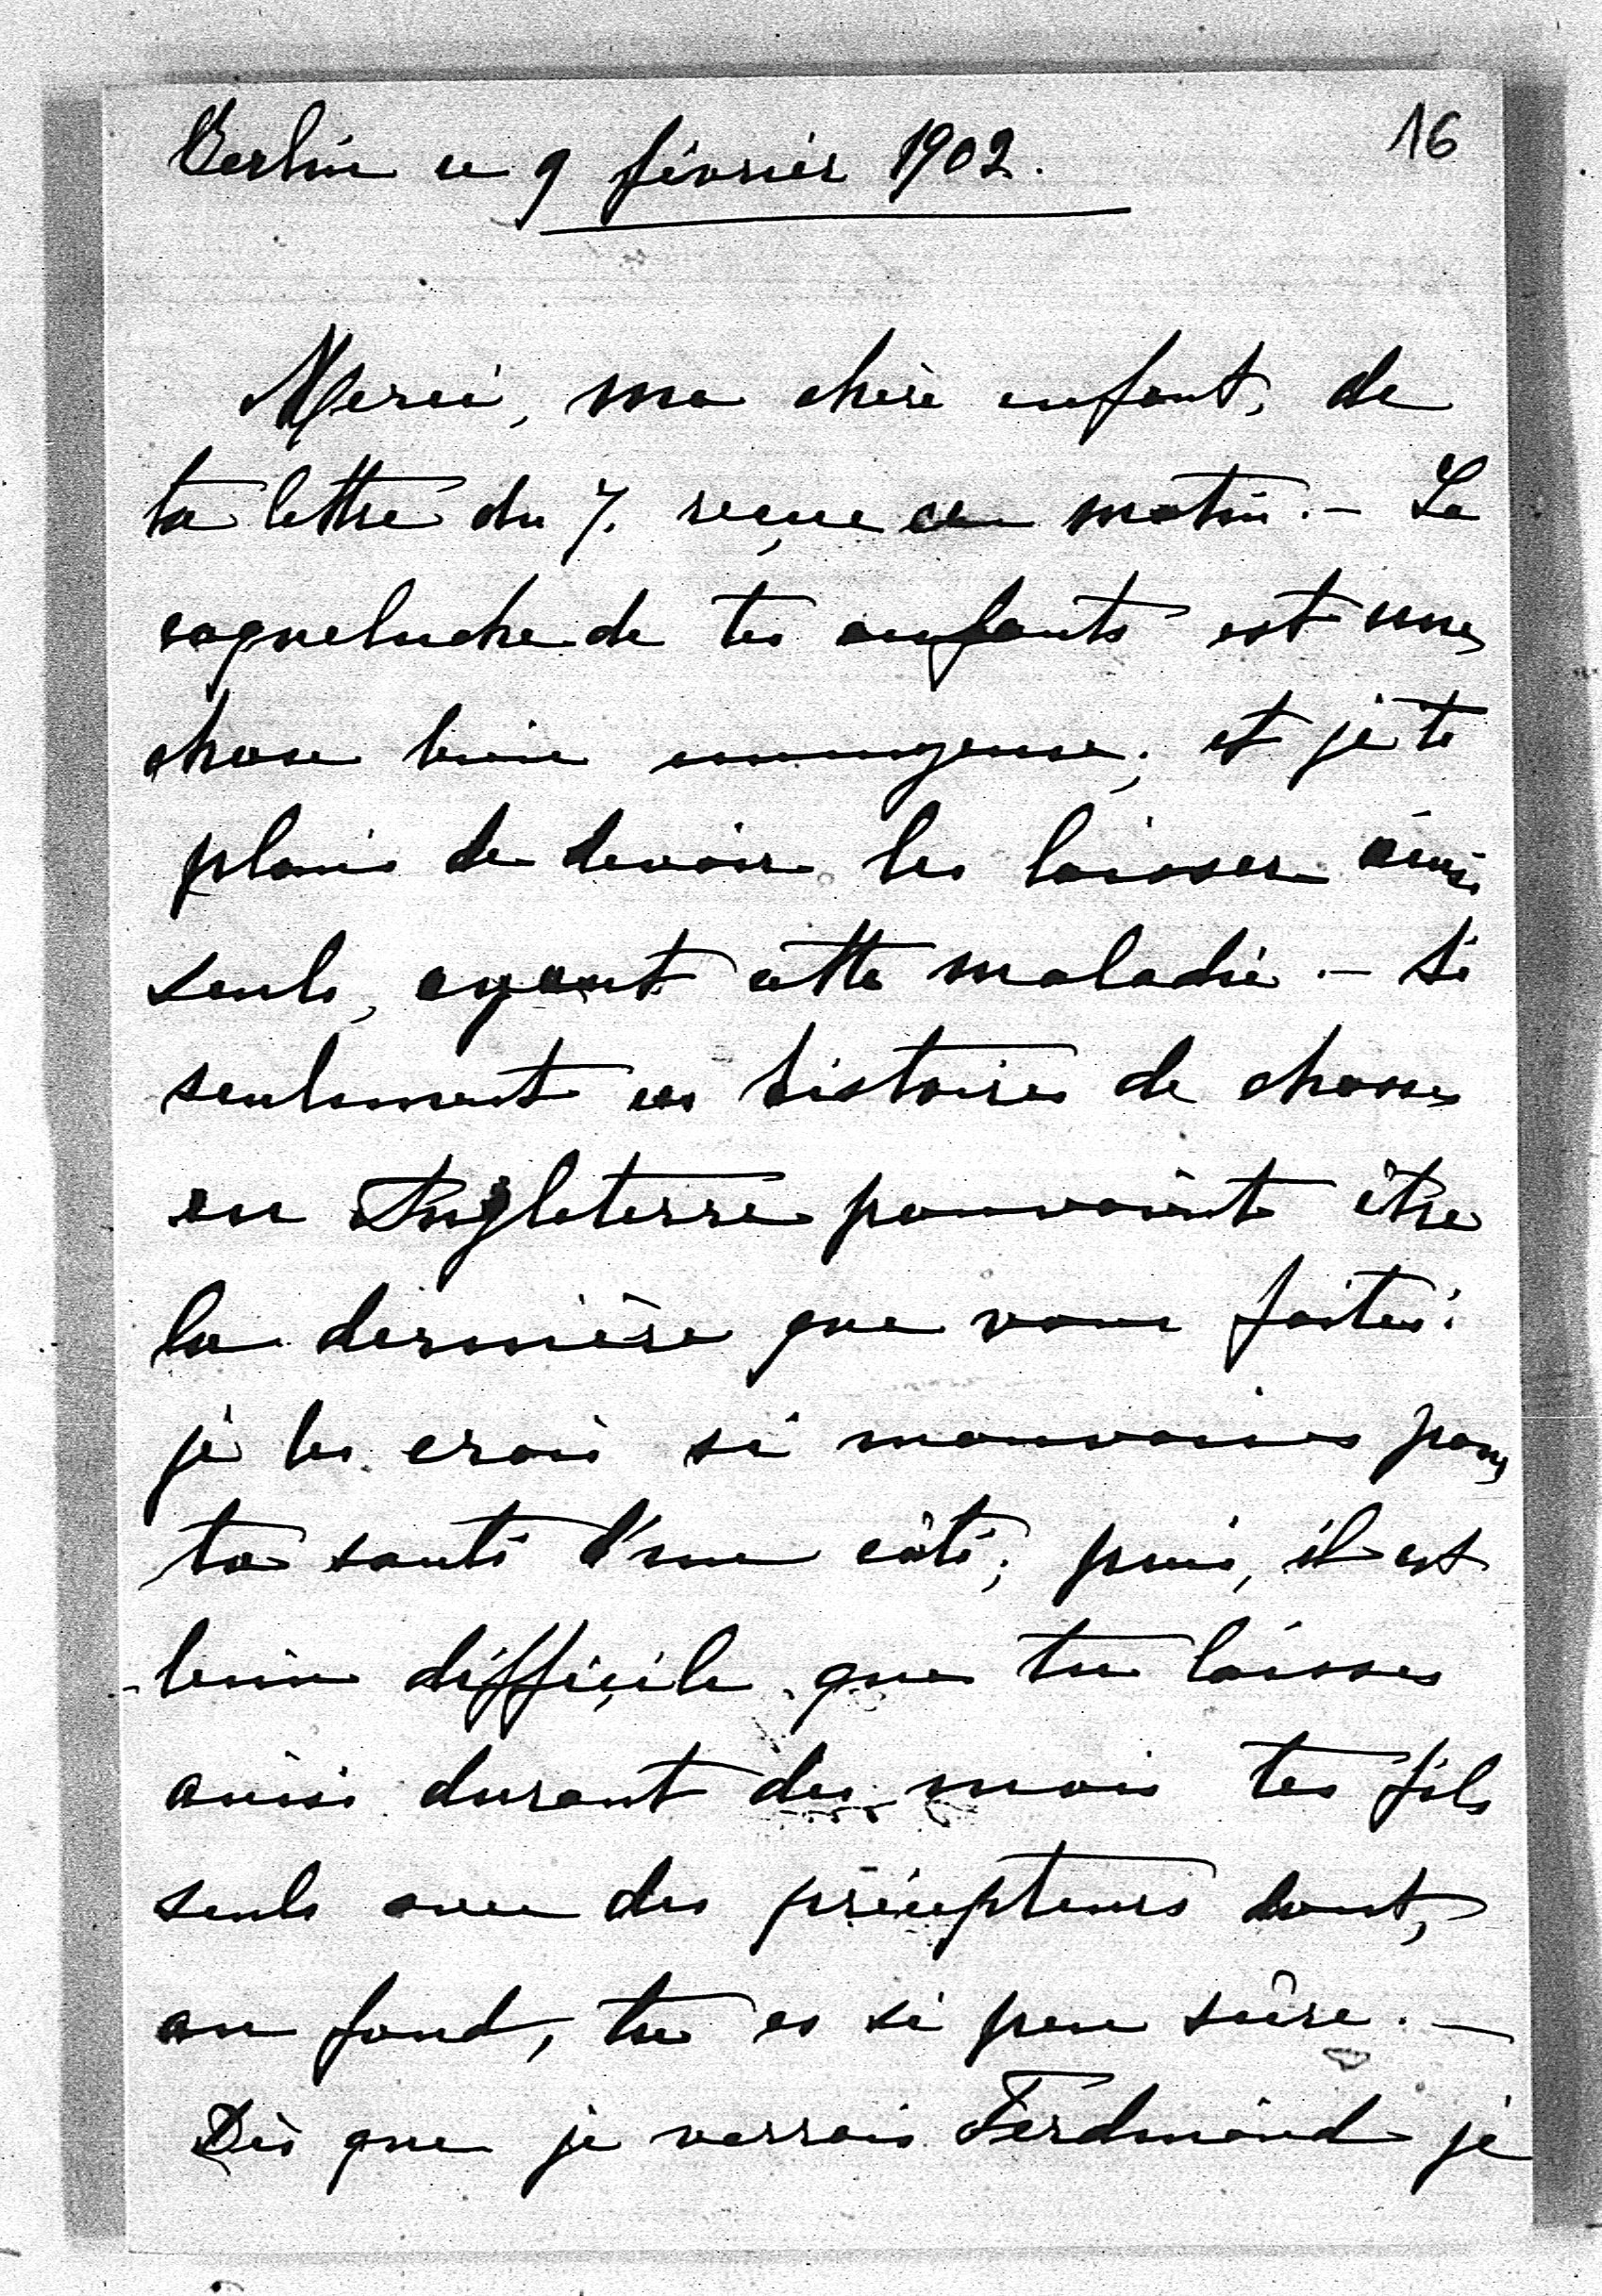 16
Berlin ce 9 février 1902.
Merci, ma chère enfant, de
ta lettre du 7. reçue ce matin. – La
coqueluche de tes enfants est une
chose bien ennuyeuse; et je te
plains de devoir les laisser ainsi
seuls, ayant cette maladie. – Si
seulement ces histoires de chasses
en Angleterre pouvaient être
la dernière que vous faites:
je les crois si mauvaises pour
ta santé d'une côté; puis, il est
bien difficile que tu laisses
ainsi durant des mois tes fils
seuls avec des précepteurs dont,
au fond, tu es si peu sûre. –
Dès que je verrais Ferdinand je